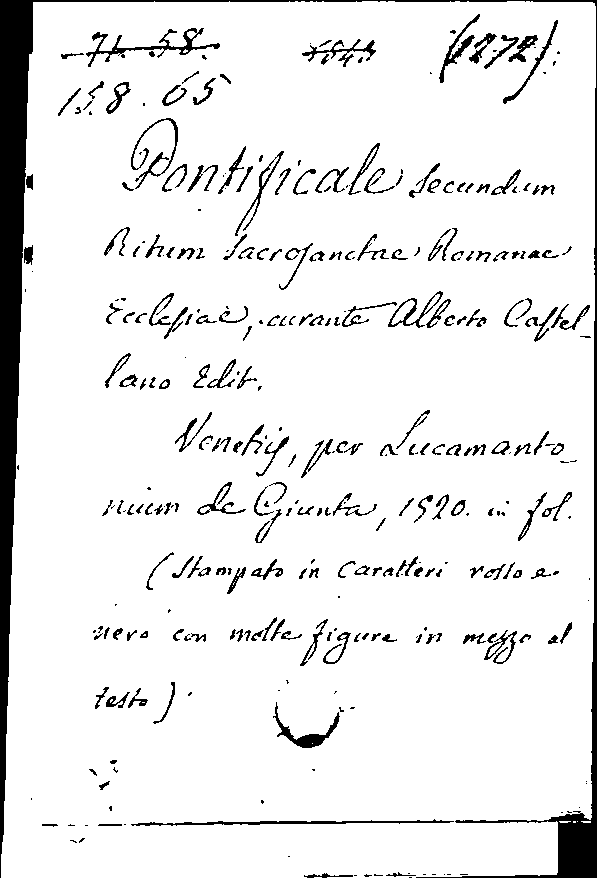 71. 58. (1272).
158. 65
Pontificale secundum
Ritum sacrosanctae Romanae
Ecclesiae, curante Alberto Castel-
lano Edit.
Venetijs, per Lucamanto-
nium de Giunta, 1520. in fol.
(Stampato in caratteri rosso e
nero con molte figure in mezzo al
testo).